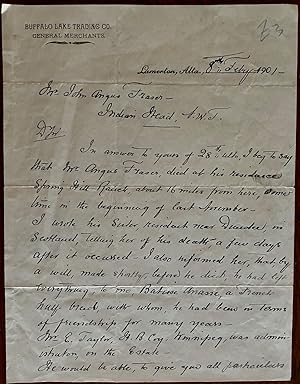 BUFFALO LAKE TRADING CO.
GENERAL MERCHANTS.
Lamerton, Alta. 8th Feby 1901
Mr John Angus Fraser
Indian Head, N.W.T.
D/Sir
In answer to yours of 28th ulto, I beg to say
that Mr Angus Fraser, died at his residence
Spring Hill Ranch about 16 miles from here, some
time in the beginning of last November.
I wrote his Sister Resident near Dundee, in
Scotland, telling her of his death, a few days
after it occured - I also informed her, that by
a will, made shortly before he died, he had left
everything to one Batisse Anasse, a French
half-breed, with whom he had been in terms
of friendship for many years -
Mr C. Taylor, H. B. Coy. Winnipeg, was admin-
istrator, on the Estate -
He would be able, to give you all particulars